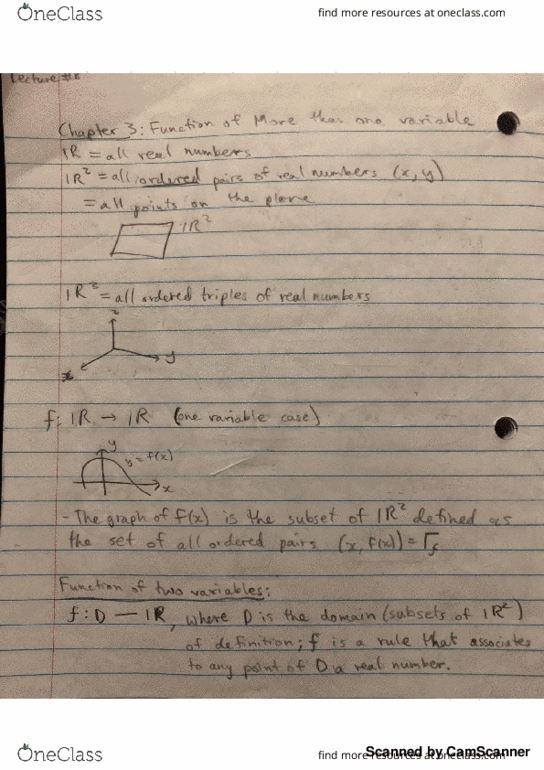 OneClass
find more resources at oneclass.com
Chapter 3: Function of More than one variable
ℝ = all real numbers
ℝ² = all ordered pairs of real numbers (x, y)
= all points on the plane
ℝ²
ℝ³ = all ordered triples of real numbers
z
y
x
f: ℝ → ℝ (one variable case)
y
y = f(x)
x
- The graph of f(x) is the subset of ℝ² defined as
the set of all ordered pairs (x, f(x)) = Γf
Function of two variables:
f: D — ℝ, where D is the domain (subsets of ℝ²)
of definition; f is a rule that associates
to any point of D a real number.
OneClass
find more resources at oneclass.com
Scanned by CamScanner